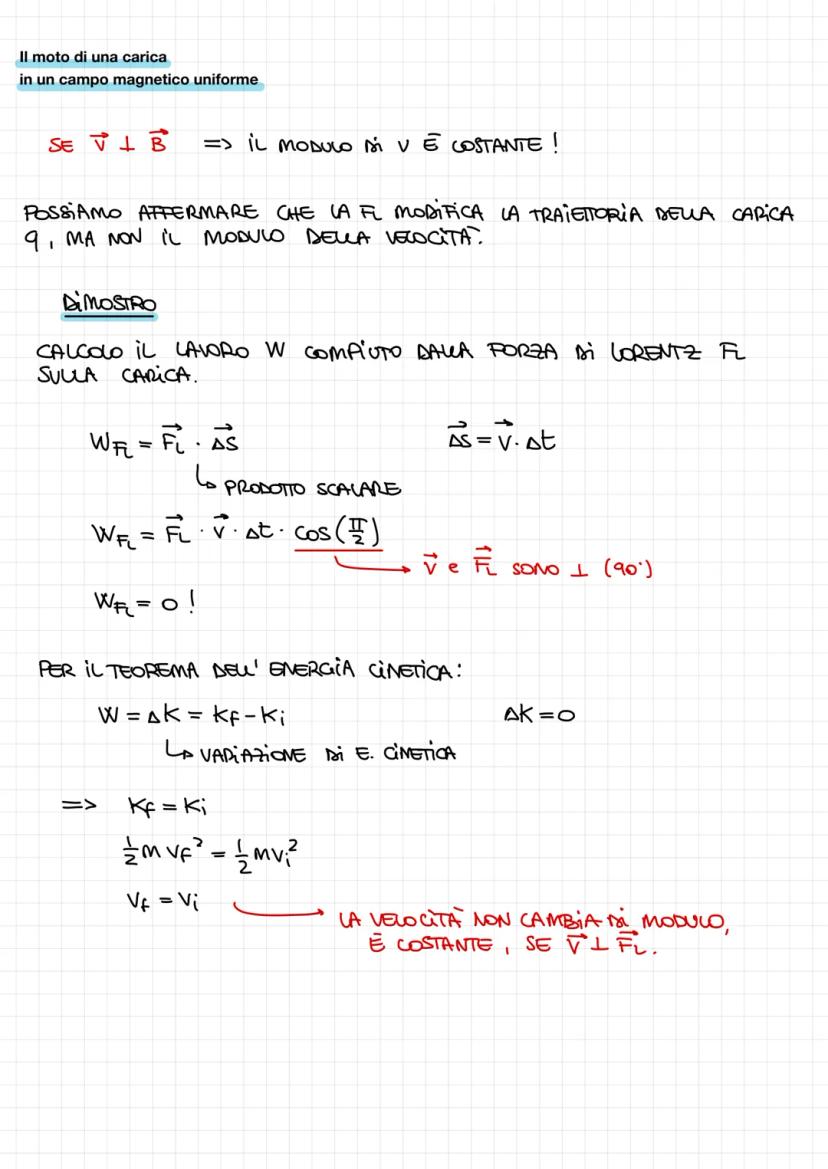 Il moto di una carica
in un campo magnetico uniforme
SE v⃗ ⊥ B⃗ => IL MODULO DI V È COSTANTE !
POSSIAMO AFFERMARE CHE LA FL MODIFICA LA TRAIETTORIA DELLA CARICA
q, MA NON IL MODULO DELLA VELOCITÀ.
DIMOSTRO
CALCOLO IL LAVORO W COMPIUTO DALLA FORZA DI LORENTZ FL
SULLA CARICA.
W_FL = F⃗L · ΔS⃗ ΔS⃗ = V⃗ · Δt
↳ PRODOTTO SCALARE
W_FL = F⃗L · V⃗ · Δt · cos(π/2)
→ V⃗ e F⃗L SONO ⊥ (90°)
W_FL = 0 !
PER IL TEOREMA DELL' ENERGIA CINETICA:
W = ΔK = Kf - Ki ΔK = 0
↳ VARIAZIONE DI E. CINETICA
=> Kf = Ki
1/2 m Vf² = 1/2 m Vi²
Vf = Vi
→ LA VELOCITÀ NON CAMBIA DI MODULO,
È COSTANTE, SE V⃗ ⊥ F⃗L.